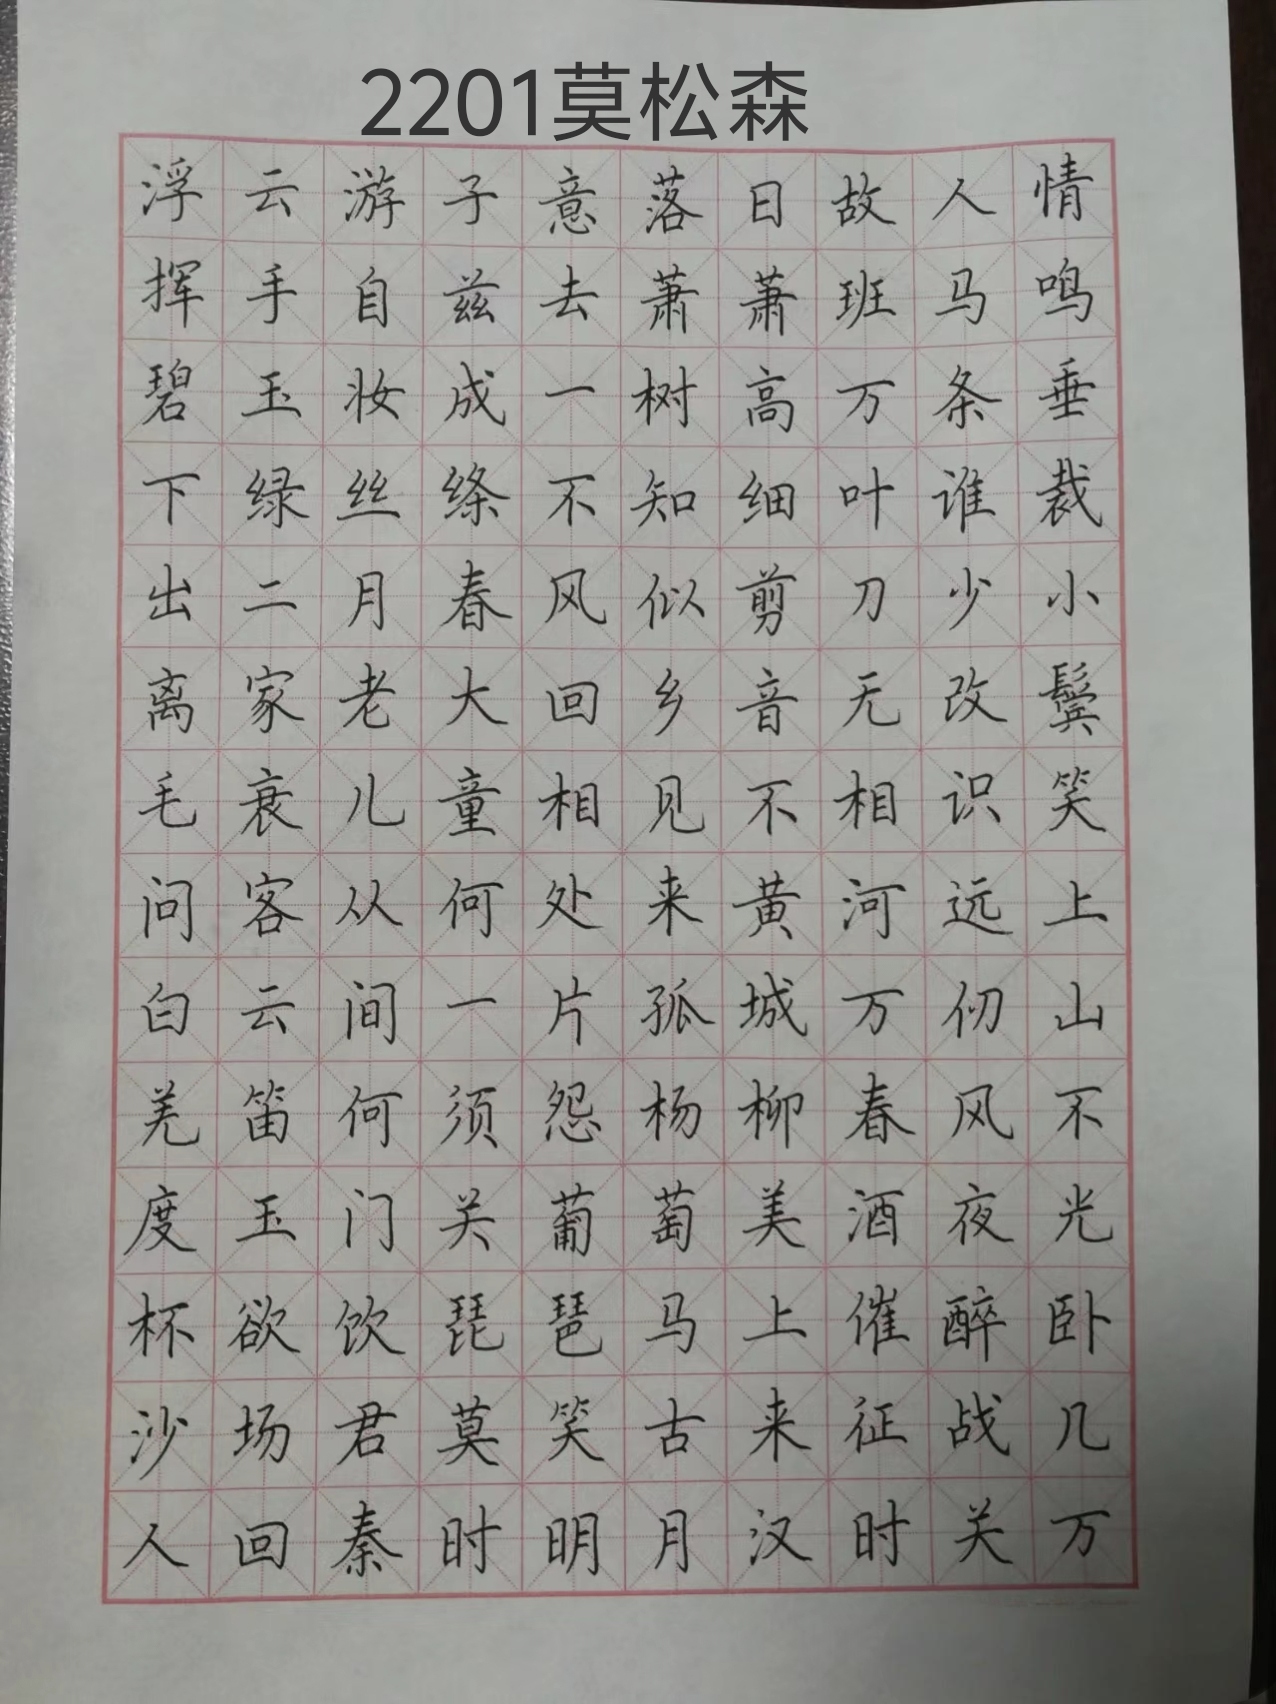 2201莫松森
浮云游子意落日故人情
挥手自兹去萧萧班马鸣
碧玉妆成一树高万条垂
下绿丝绦不知细叶谁裁
出二月春风似剪刀少小
离家老大回乡音无改鬓
毛衰儿童相见不相识笑
问客从何处来黄河远上
白云间一片孤城万仞山
羌笛何须怨杨柳春风不
度玉门关葡萄美酒夜光
杯欲饮琵琶马上催醉卧
沙场君莫笑古来征战几
人回秦时明月汉时关万